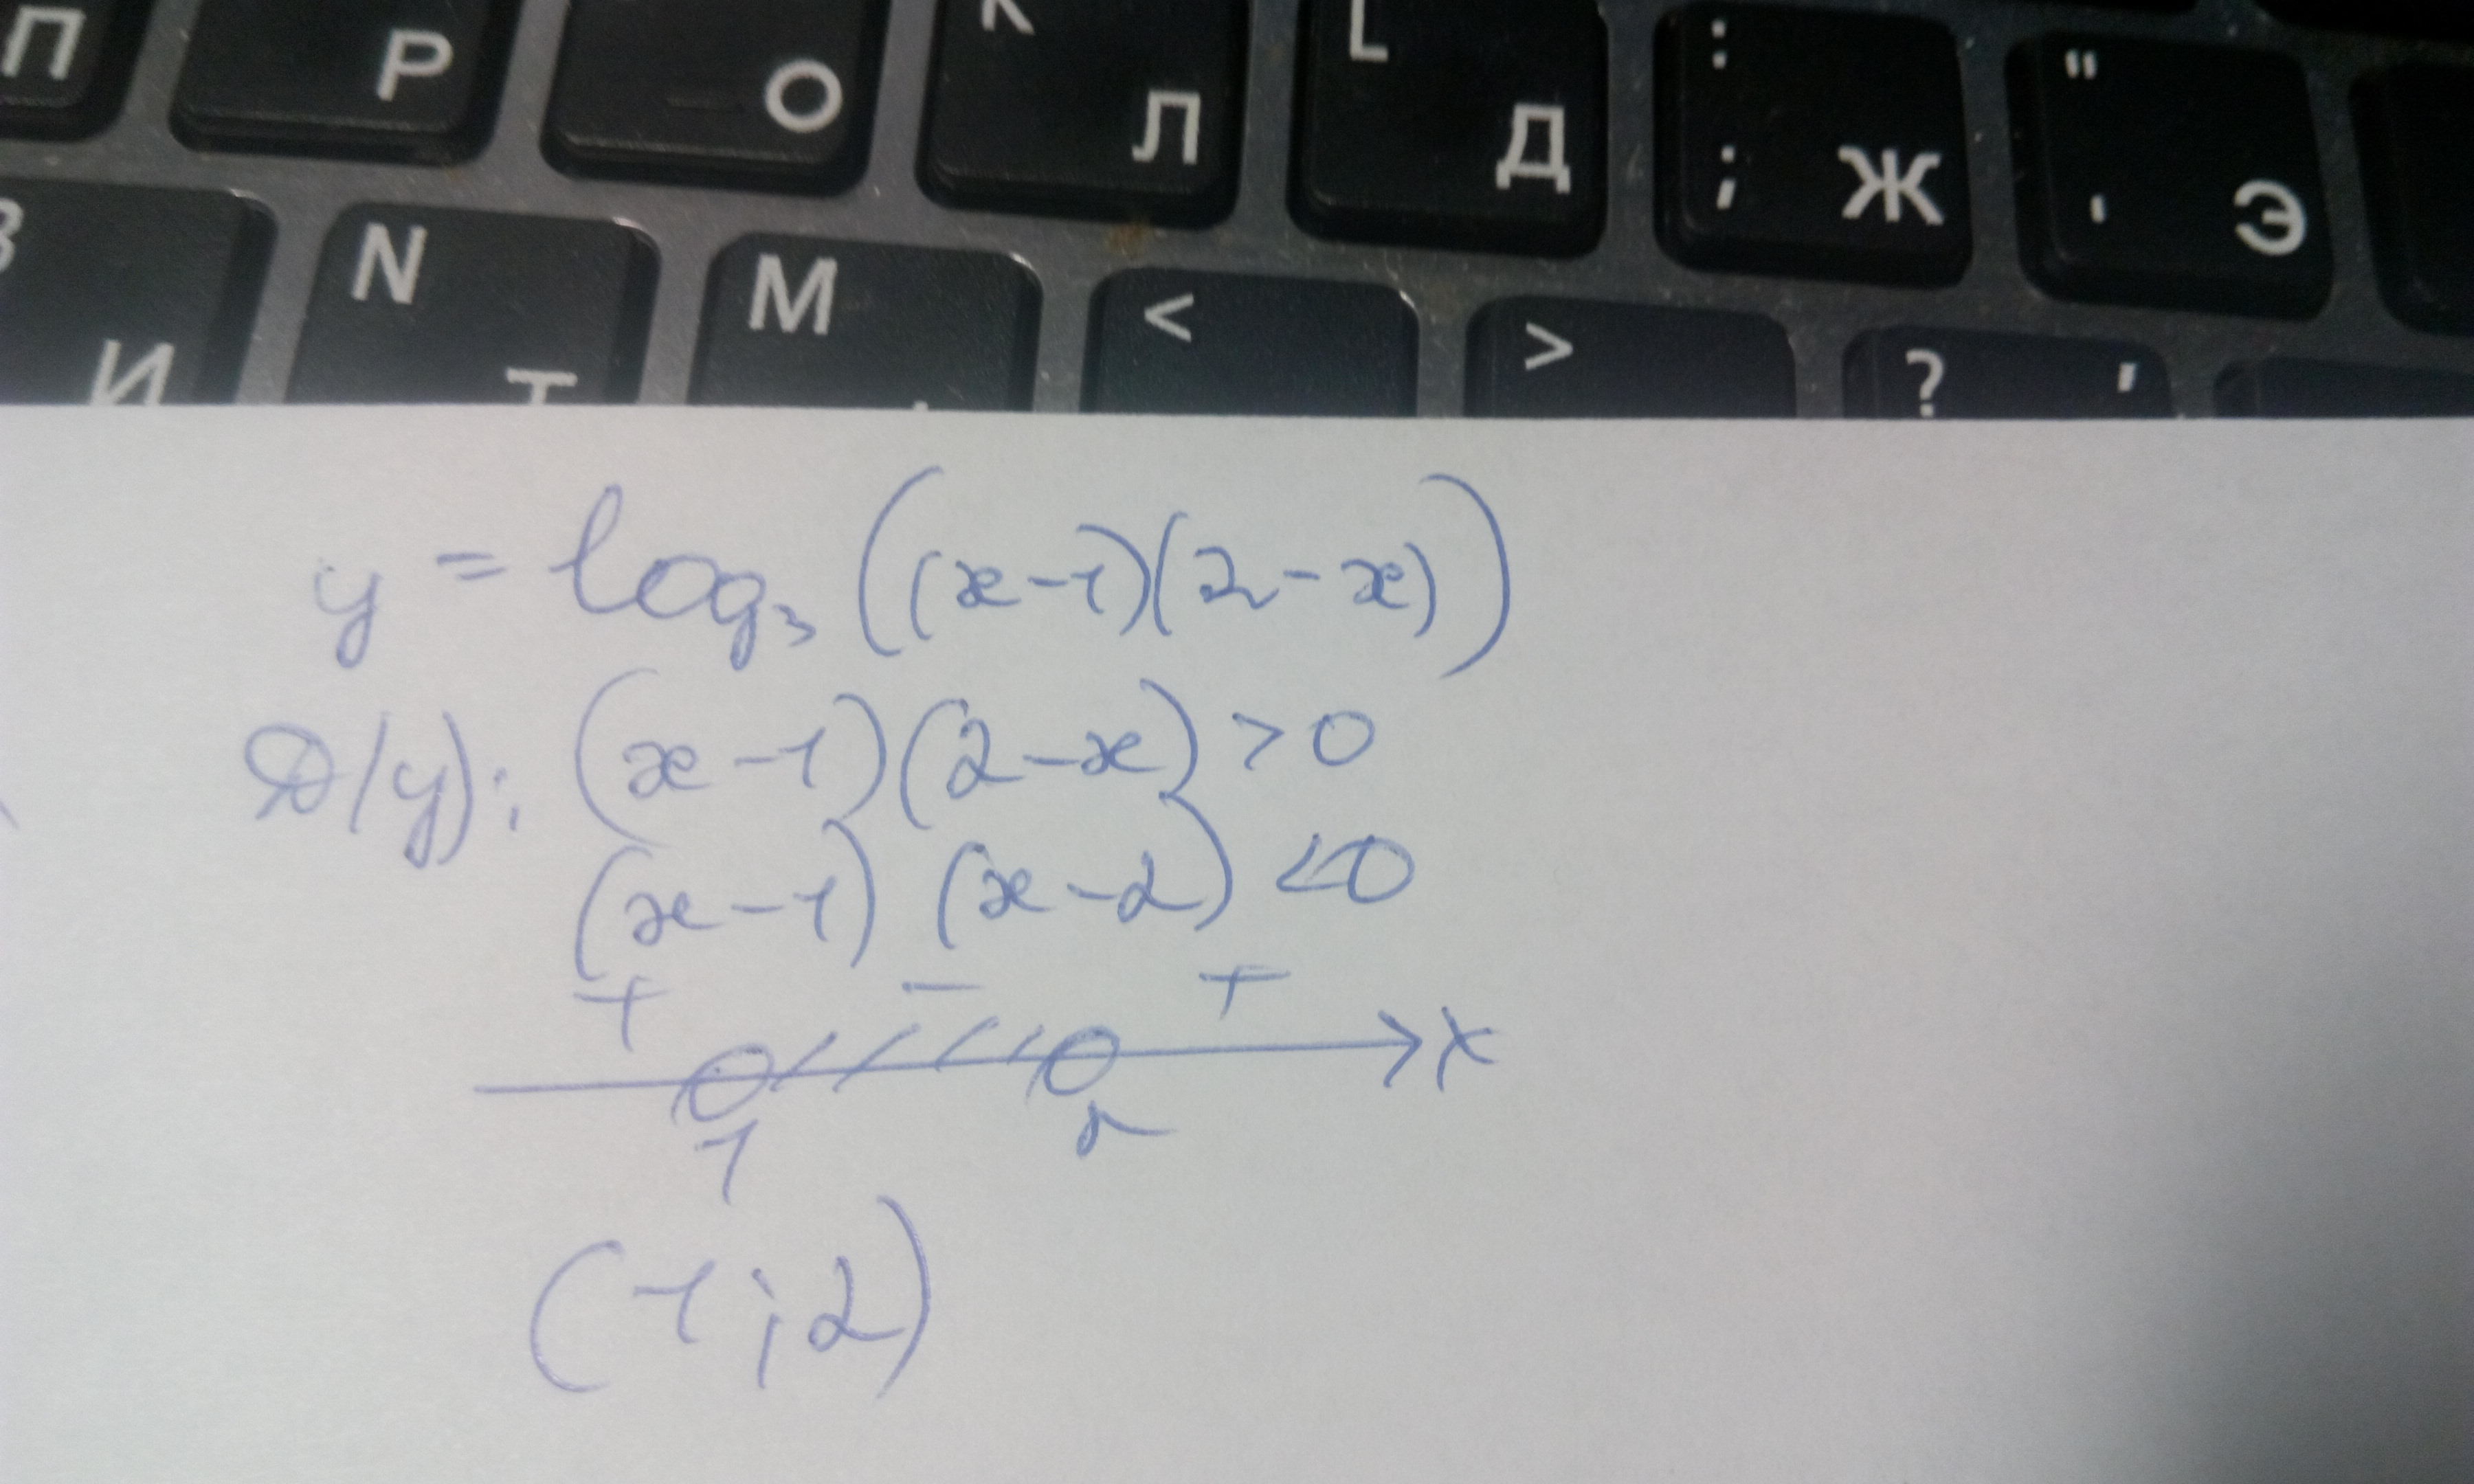 П Р О К Л L Д : ; Ж " ' Э
В И N Т M < > ? '
y = log₃ ((x-1)(2-x))
D(y): (x-1)(2-x) > 0
(x-1) (x-2) < 0
+ - +
x
1 2
(1; 2)